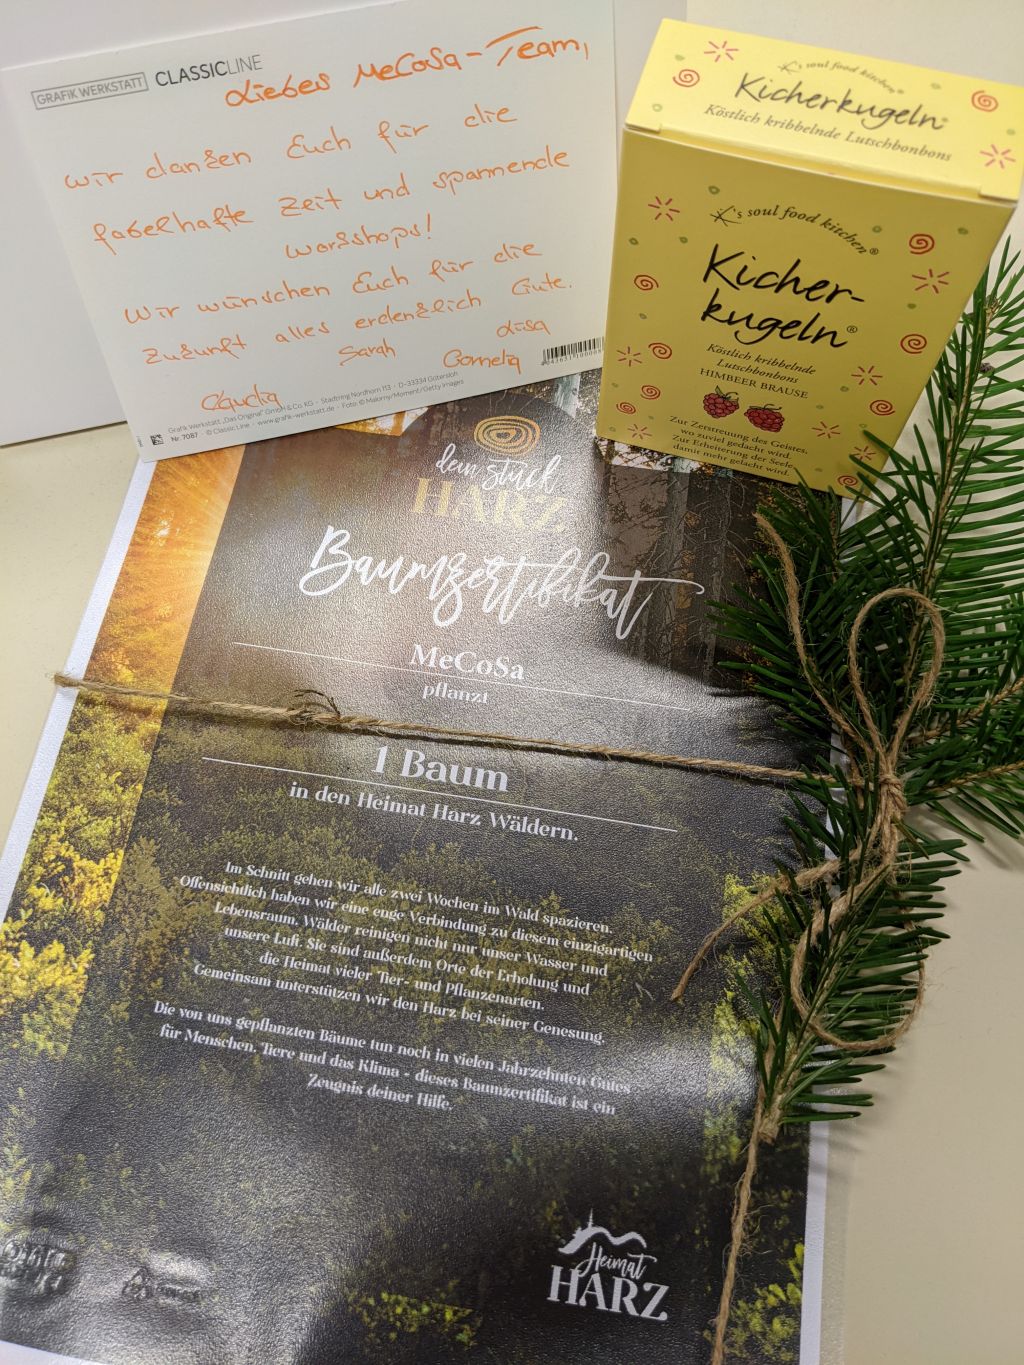 GRAFIK WERKSTATT CLASSICLINE
Liebes MeCoSa-Team,
wir danken Euch für die
fabelhafte Zeit und spannende
Workshops!
Wir wünschen Euch für die
Zukunft alles erdenklich Gute.
Claudia Sarah Cornelia Lisa
Grafik Werkstatt „Das Original" GmbH & Co. KG · Stadtring Nordhorn 113 · D-33334 Gütersloh
Nr. 7087 · © Classic Line · www.grafik-werkstatt.de · Foto: © Malorny/Moment/Getty Images
K's soul food kitchen®
Kicherkugeln®
Köstlich kribbelnde Lutschbonbons
K's soul food kitchen®
Kicher-
kugeln®
Köstlich kribbelnde
Lutschbonbons
HIMBEER BRAUSE
Zur Zerstreuung des Geistes,
wo zuviel gedacht wird.
Zur Erheiterung der Seele,
damit mehr gelacht wird.
dein stück
HARZ
Baumzertifikat
MeCoSa
pflanzt
1 Baum
in den Heimat Harz Wäldern.
Im Schnitt gehen wir alle zwei Wochen im Wald spazieren.
Offensichtlich haben wir eine enge Verbindung zu diesem einzigartigen
Lebensraum. Wälder reinigen nicht nur unser Wasser und
unsere Luft. Sie sind außerdem Orte der Erholung und
die Heimat vieler Tier- und Pflanzenarten.
Gemeinsam unterstützen wir den Harz bei seiner Genesung.
Die von uns gepflanzten Bäume tun noch in vielen Jahrzehnten Gutes
für Menschen, Tiere und das Klima - dieses Baumzertifikat ist ein
Zeugnis deiner Hilfe.
Heimat
HARZ